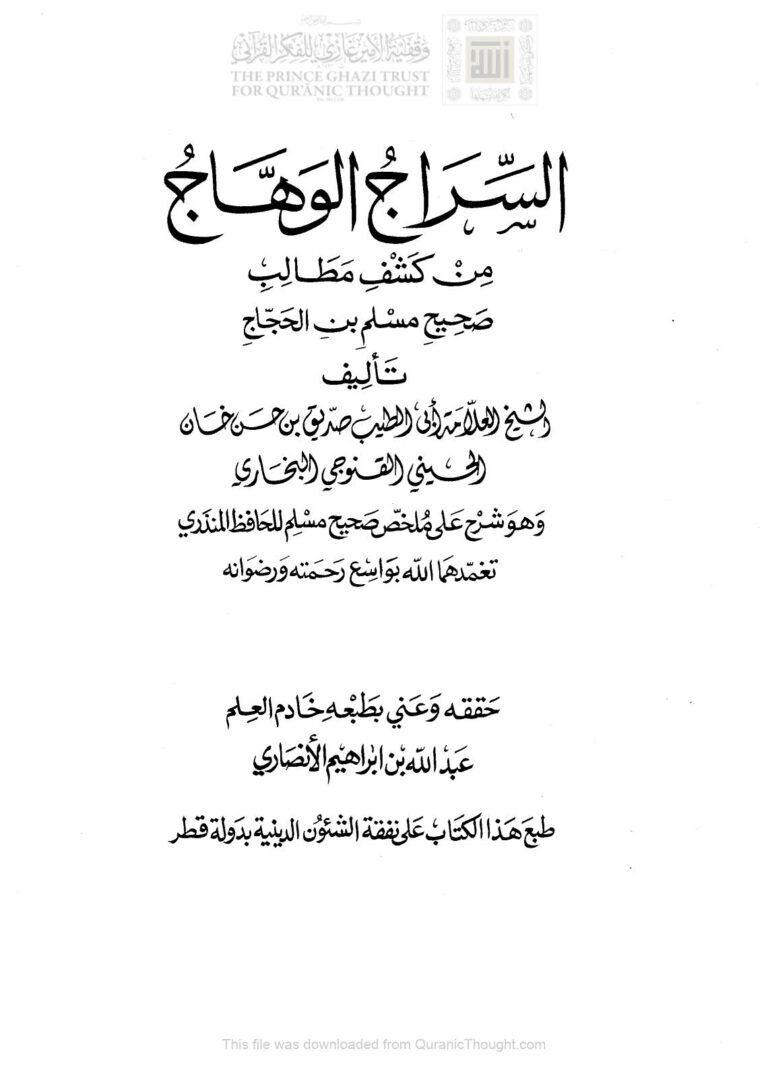 وقفية الأمير غازي للفكر القرآني
THE PRINCE GHAZI TRUST
FOR QUR'ĀNIC THOUGHT
السِّرَاجُ الوَهَّاجُ
مِنْ كَشْفِ مَطَالِبِ
صَحِيحِ مسْلمِ بنِ الحَجّاجِ
تَأليف
الشيخ العلّامة أبي الطيب صدّيق بن حسن خان
الحسيني القنوجي البخاري
وَهوَ شرْح عَلى مُلخّص صَحيح مسْلِم للحَافظ المنذري
تغمّدهمَا الله بوَاسِع رَحمَته وَرضوَانه
حَققه وَعَني بطَبْعهِ خَادم العِلم
عَبْد الله بْن ابراهيم الأنصَاري
طبعَ هَذا الكتَابْ عَلى نفقة الشئوُن الدينية بدَولة قطر
This file was downloaded from QuranicThought.com